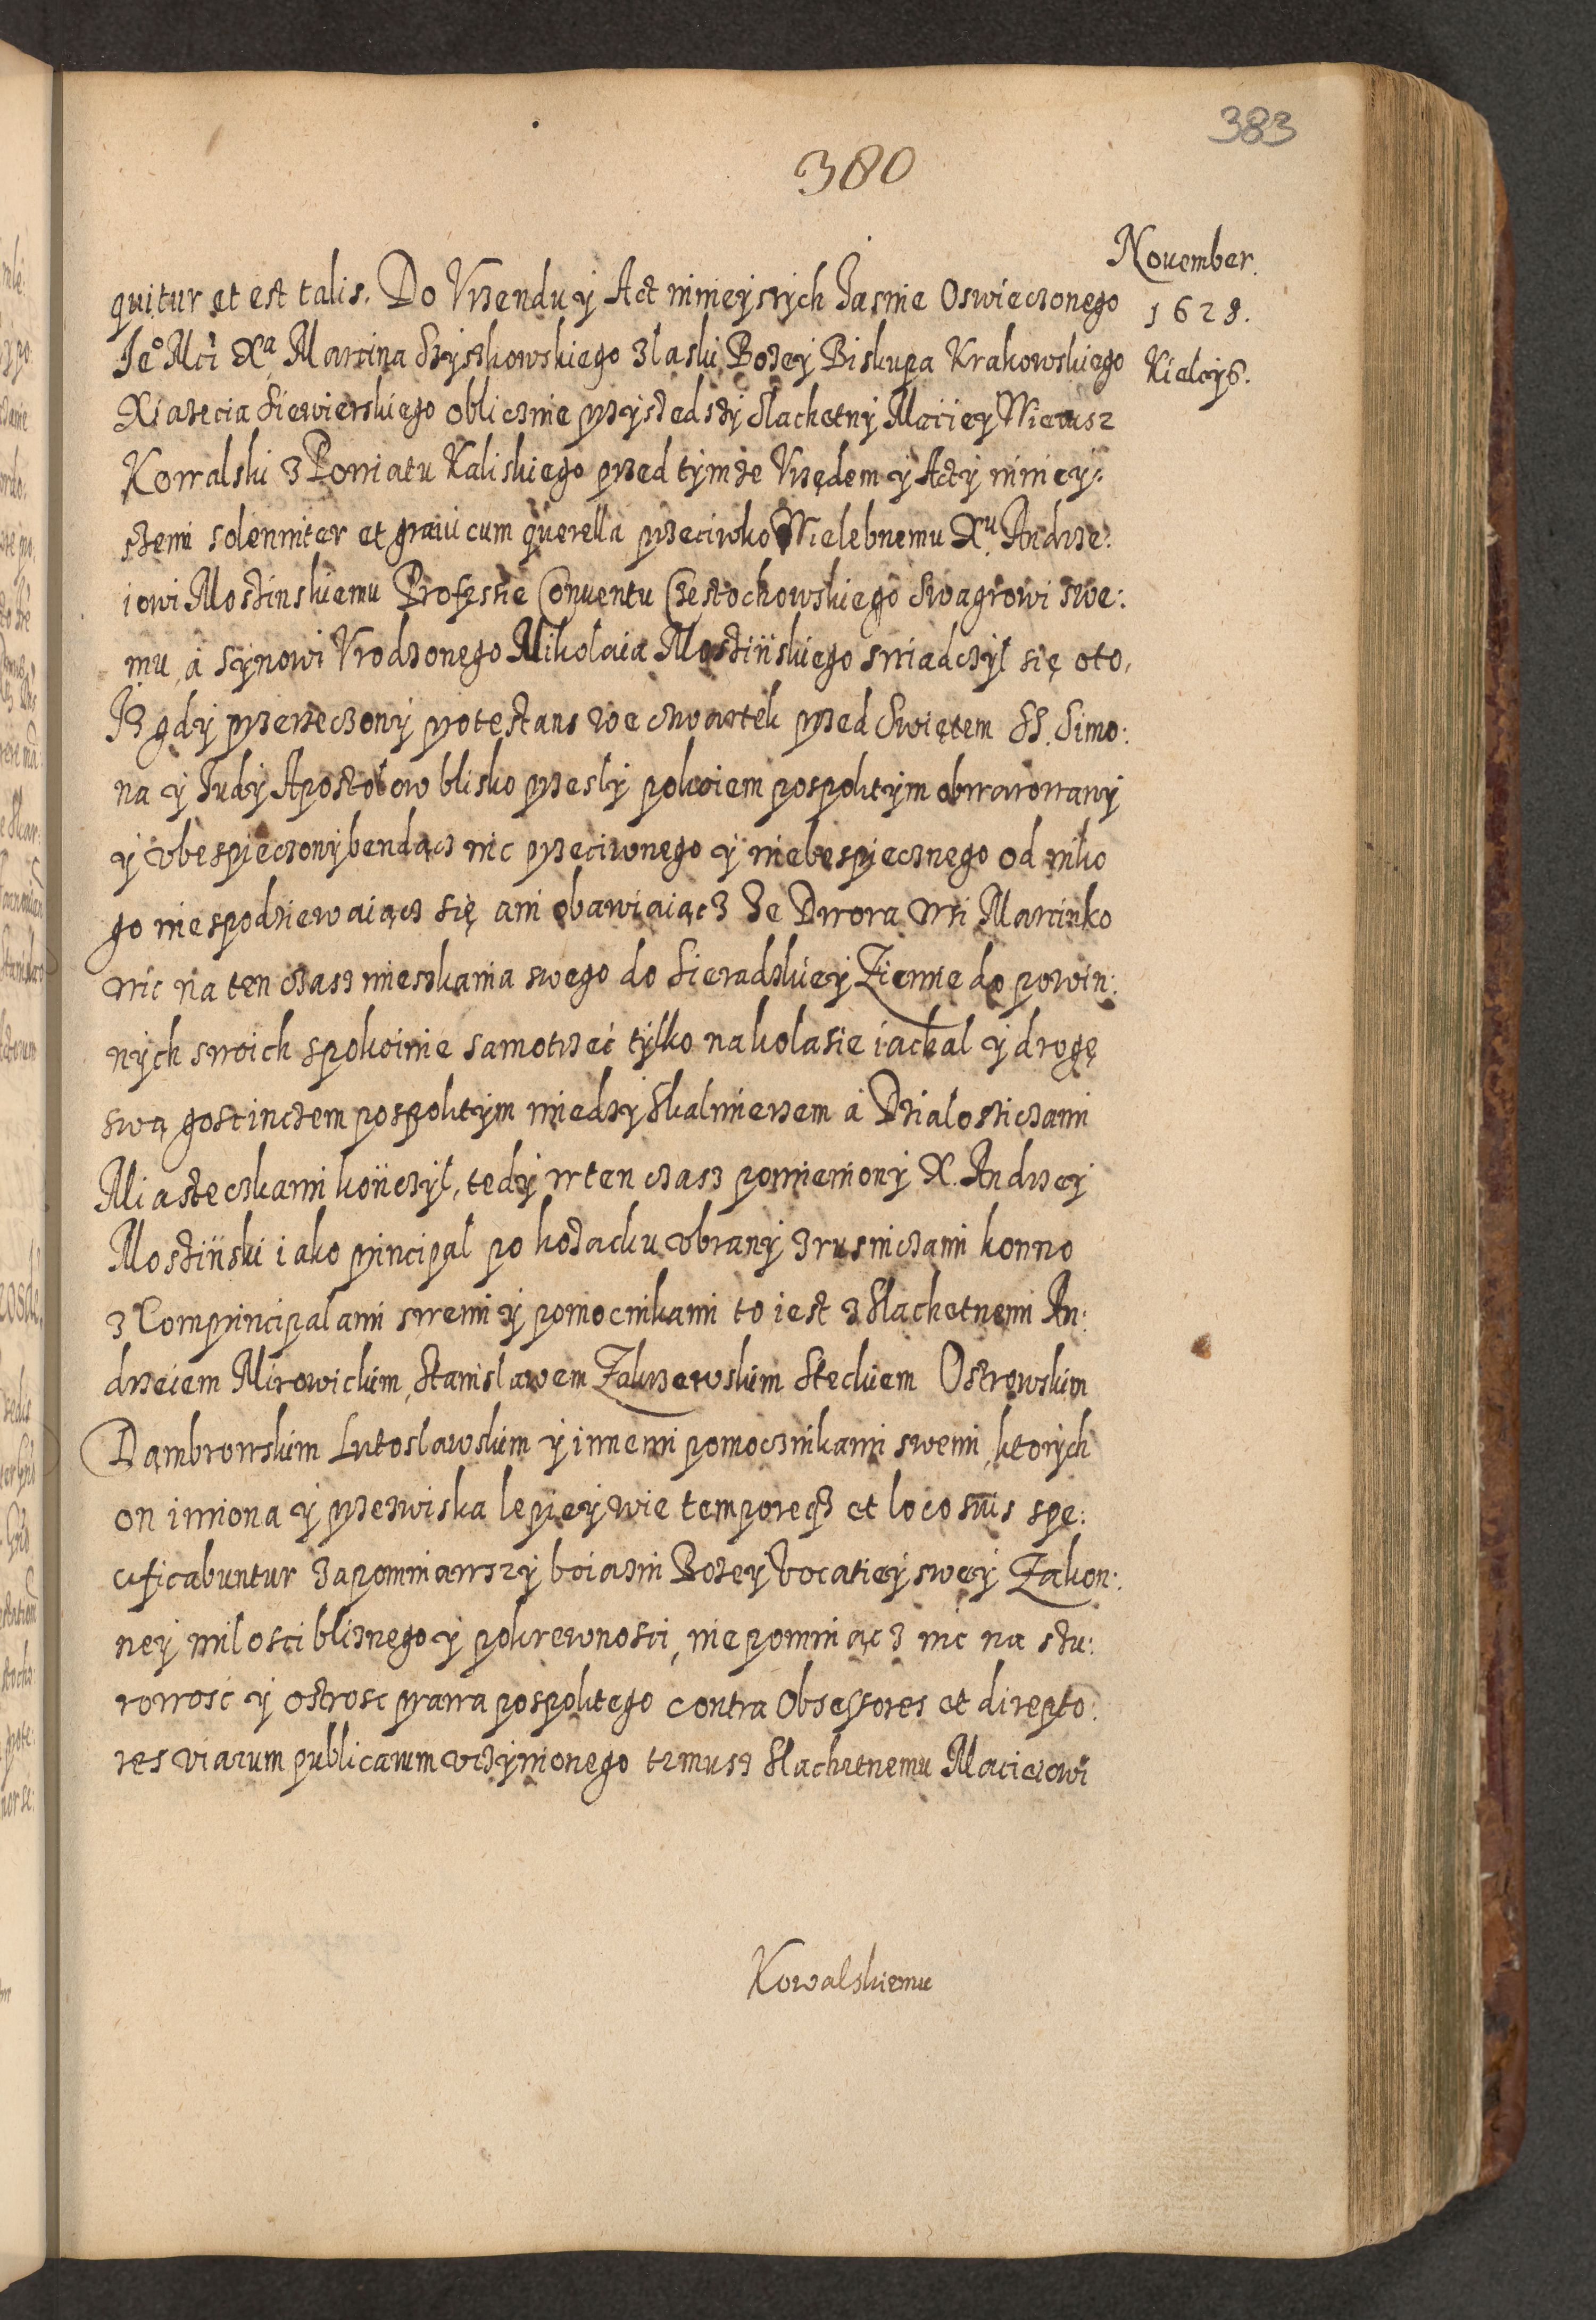 383
380
November.
1628.
Kielcÿs.
quitur et est talis. Do Vrzendu ÿ Act ninieÿszÿch Jasnie Oswieczonego
Jeº Mci Xª Marcina Szÿszkowskiego z laski Bozeÿ Biskupa Krakowskiego
Xiazecia Siewierskiego oblicznie przÿszedszÿ Slachetnÿ Macieÿ Wierusz
Kowalski z Powiatu Kaliskiego przed tÿmze Vrzędem ÿ Actÿ ninieÿ:
szemi solenniter et graui cum querella przeciwko Wielebnemu Xᵘ Andrze:
iowi Mostinskiemu Professie Conuentu Czestochowskiego Swagrowi swe:
mu, á Sÿnowi Vrodzonego Mikolaia Mostińskiego swiadczÿl się oto,
Iz gdÿ przerzeczonÿ protestans we czwartek przed Swiętem SS. Simo:
na ÿ Judÿ Apostolow blisko przeslÿ pokoiem pospolitÿm obwarowanÿ
ÿ vbespieczonÿ bendącz nic przeciwnego ÿ niebespiecznego od niko
go niespodziewaiącz się ani obawiaiącz ze Dwora wsi Marcinko
wic na ten czasz mieszkania swego do Sieradzkieÿ Ziemie do powin:
nÿch swoich spokoinie samotrzeć tÿlko na kolasie iachal ÿ drogę
swą goscinczem pospolitÿm międzÿ Skalmierzem á Dzialoszicami
Miasteczkami kończÿl, tedÿ w ten czasz pomienionÿ X. Andrzeÿ
Mostiński iako principal po kozacku vbranÿ z rusniczami konno
z Comprincipalami swemi ÿ pomocnikami to iest z Slachetnemi An:
drzeiem Mirowickim, Stanislawem Zakrzewskim Steckiem Ostrowskim
Dąmbrowskim Lutoslawskim ÿ innemi pomocznikami swemi, ktorÿch
on imiona ÿ przezwiska lepieÿ wie tempore et loco suis spe:
cificabuntur zapomniawszÿ boiazni Bozeÿ Vocatieÿ sweÿ Zakon:
neÿ milosci bliznego ÿ pokrewnosci, nie pomniącz nic na su:
rowosc ÿ ostrosc prawa pospolitego contra Obsessores et direpto:
res viarum publicarum vczÿnionego temusz Slachetnemu Macieiowi
Kowalskiemu